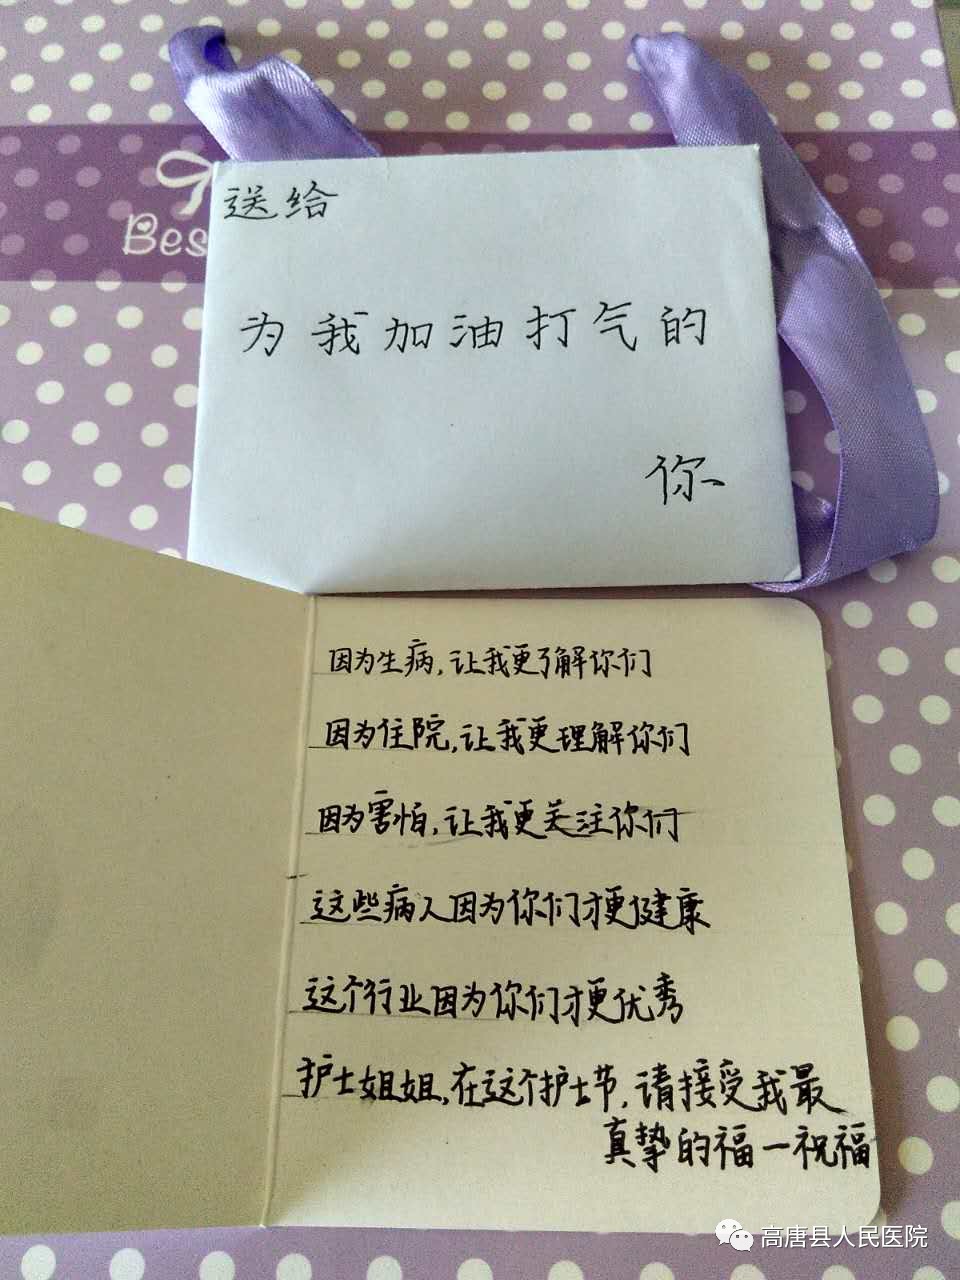 Bes
送给
为我加油打气的
你
因为生病,让我更了解你们
因为住院,让我更理解你们
因为害怕,让我更关注你们
这些病人因为你们才更健康
这个行业因为你们才更优秀
护士姐姐,在这个护士节,请接受我最
真挚的福一祝福
高唐县人民医院